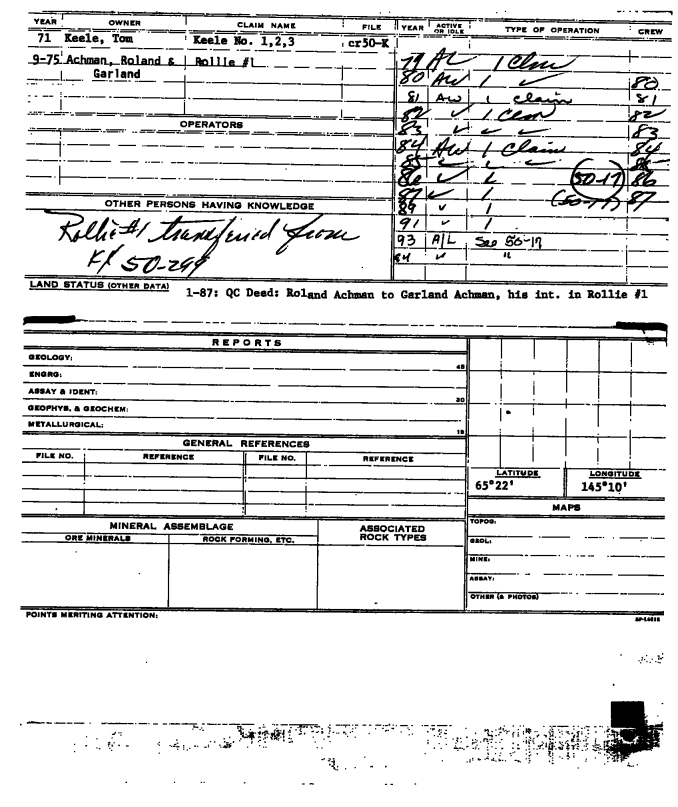 YEAR OWNER CLAIM NAME FILE YEAR ACTIVE OR IDLE TYPE OF OPERATION CREW
71 Keele, Tom Keele No. 1,2,3 cr50-K
9-75 Achman, Roland & Garland Rollie #1
79 AL 1 Clm
80 AW 1 ✓ 80
81 AW 1 claim 81
82 ✓ 1 Clm 82
83 ✓ ✓ ✓ 83
84 AW 1 Claim 84
85 ✓ ✓ ✓
86 ✓ 1 (50-17) 86
87 ✓ 1 (50-17) 87
89 ✓ 1
91 ✓ 1
93 A|L See 50-17
94 ✓ "
OPERATORS
OTHER PERSONS HAVING KNOWLEDGE
Rollie #1 transferred from
KX 50-299
LAND STATUS (OTHER DATA) 1-87: QC Deed: Roland Achman to Garland Achman, his int. in Rollie #1
REPORTS
GEOLOGY:
45
ENGRG:
ASSAY & IDENT:
30
GEOPHYS. & GEOCHEM:
METALLURGICAL:
15
GENERAL REFERENCES
FILE NO. REFERENCE FILE NO. REFERENCE
LATITUDE LONGITUDE
65°22' 145°10'
MAPS
MINERAL ASSEMBLAGE ASSOCIATED ROCK TYPES
ORE MINERALS ROCK FORMING, ETC.
TOPOG:
GEOL:
MINE:
ASSAY:
OTHER (& PHOTOS)
POINTS MERITING ATTENTION: